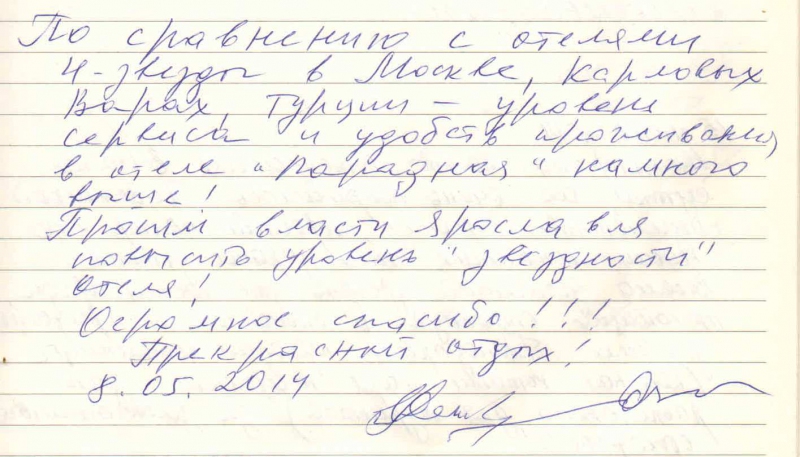 По сравнению с отелями
4-звезды в Москве, Карловых
Варах, Турции – уровень
сервиса и удобств проживания
в отеле "Парадная" намного
выше!
Просим власти Ярославля
повысить уровень "звездности"
отеля!
Огромное спасибо!!!
Прекрасный отдых!
8.05.2014